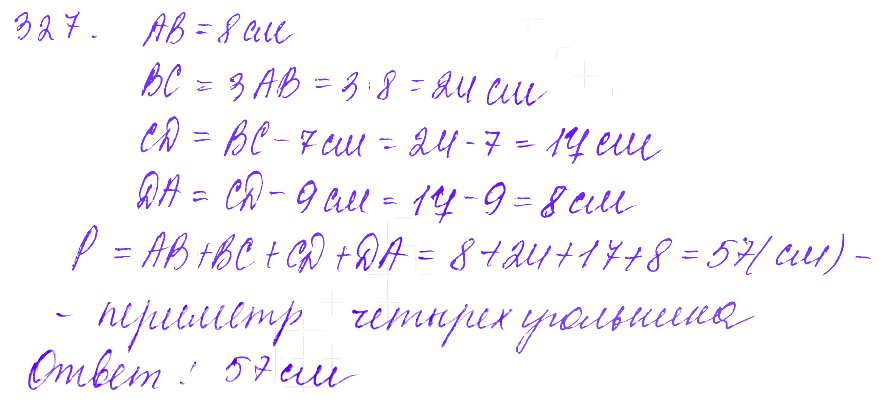 327. AB = 8 см
BC = 3AB = 3·8 = 24 см
CD = BC - 7 см = 24 - 7 = 17 см
DA = CD - 9 см = 17 - 9 = 8 см
P = AB + BC + CD + DA = 8 + 24 + 17 + 8 = 57 (см) -
- периметр четырехугольника
Ответ: 57 см